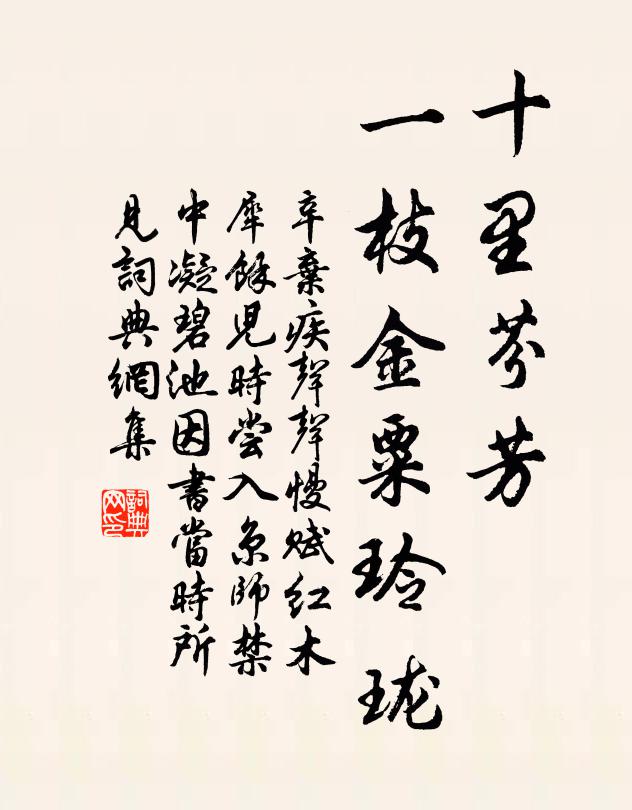 十里芬芳
一枝金粟玲珑
辛棄疾聲聲慢賦紅木
犀餘兒時嘗入京師禁
中凝碧池因書當時所
見詞典網集
詞典
网印